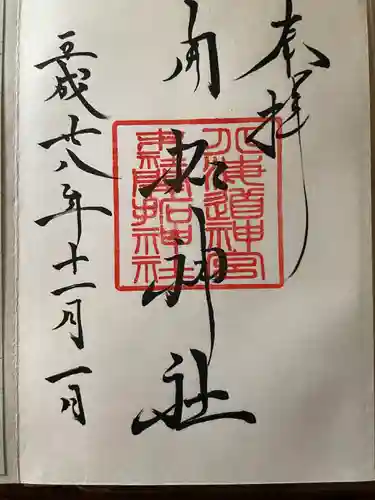 奉拝
開拓神社
北海道神宮
末社開拓神社
平成廿八年十一月一日